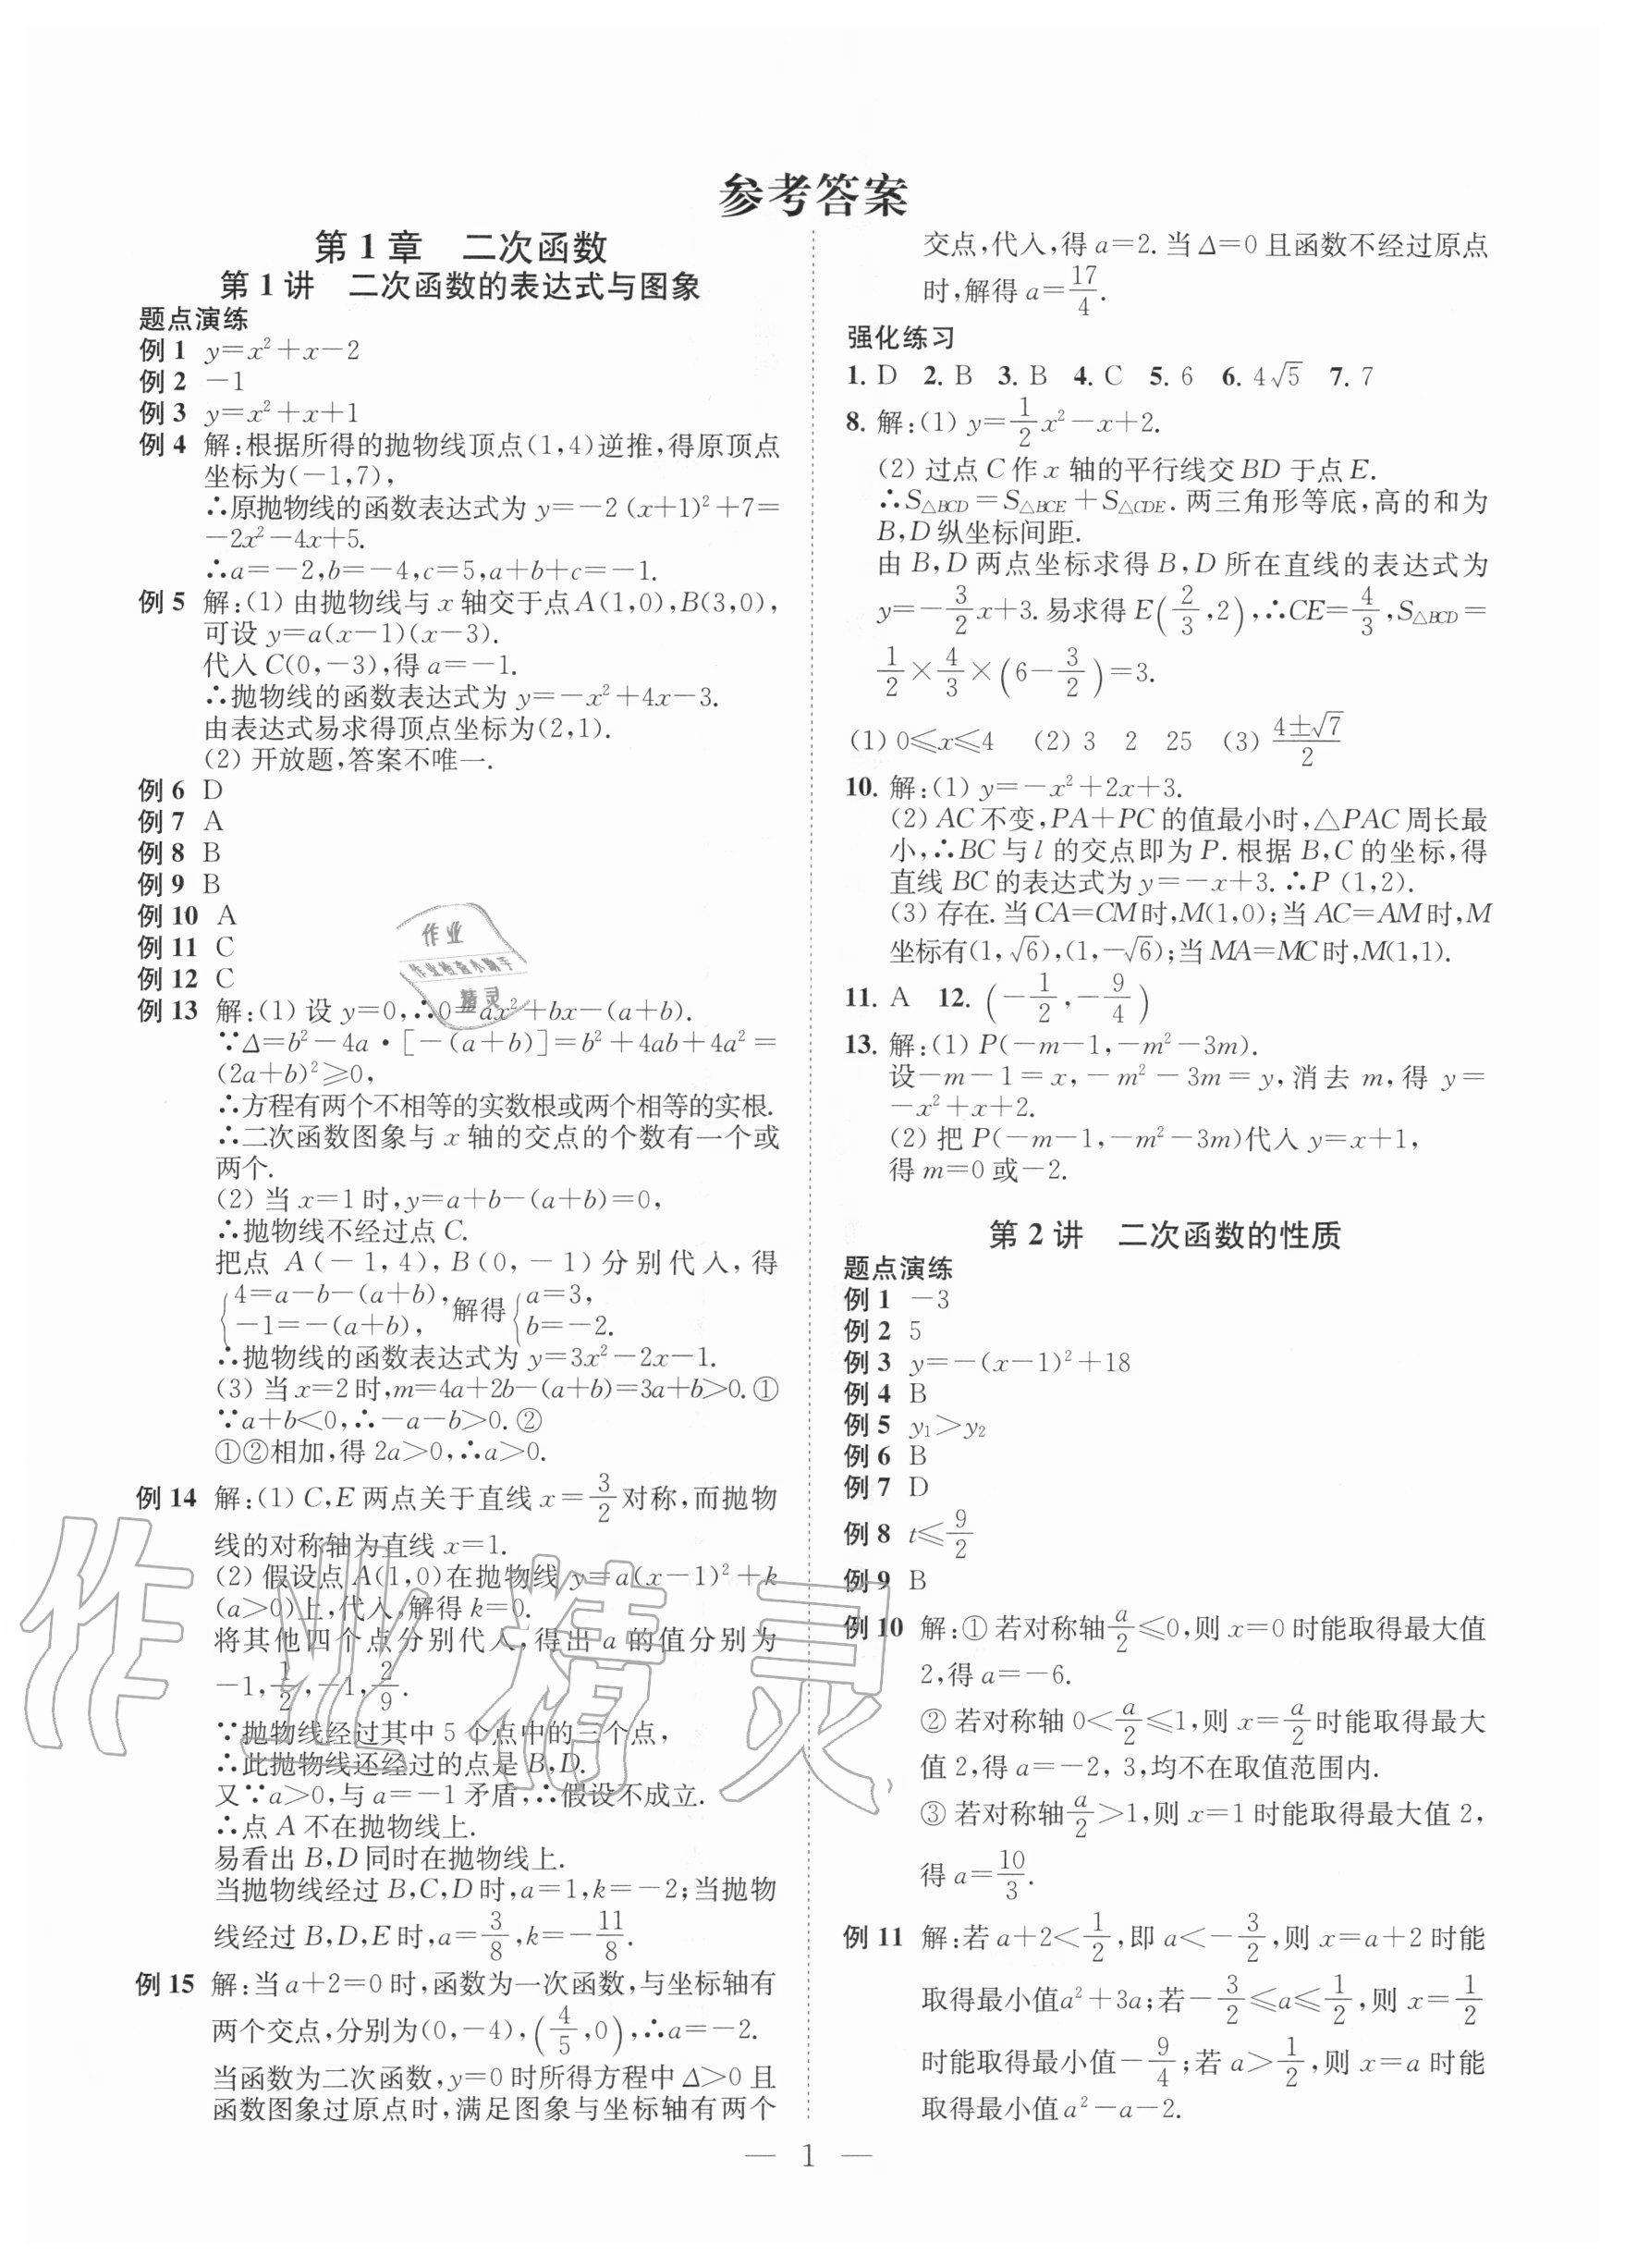 参考答案
第1章 二次函数
第1讲 二次函数的表达式与图象
题点演练
例1 y=x²+x-2
例2 -1
例3 y=x²+x+1
例4 解:根据所得的抛物线顶点(1,4)逆推,得原顶点
坐标为(-1,7),
∴原抛物线的函数表达式为 y=-2(x+1)²+7=
-2x²-4x+5.
∴a=-2,b=-4,c=5,a+b+c=-1.
例5 解:(1) 由抛物线与 x 轴交于点A(1,0),B(3,0),
可设 y=a(x-1)(x-3).
代入 C(0,-3),得 a=-1.
∴抛物线的函数表达式为 y=-x²+4x-3.
由表达式易求得顶点坐标为(2,1).
(2) 开放题,答案不唯一.
例6 D
例7 A
例8 B
例9 B
例10 A
例11 C
例12 C
例13 解:(1) 设 y=0,∴0=ax²+bx-(a+b).
∵Δ=b²-4a·[-(a+b)]=b²+4ab+4a²=
(2a+b)²≥0,
∴方程有两个不相等的实数根或两个相等的实根.
∴二次函数图象与 x 轴的交点的个数有一个或
两个.
(2) 当 x=1 时,y=a+b-(a+b)=0,
∴抛物线不经过点 C.
把点 A(-1,4),B(0,-1)分别代入,得
{4=a-b-(a+b), -1=-(a+b), 解得 {a=3, b=-2.
∴抛物线的函数表达式为 y=3x²-2x-1.
(3) 当 x=2 时,m=4a+2b-(a+b)=3a+b>0.①
∵a+b<0,∴-a-b>0.②
①②相加,得 2a>0,∴a>0.
例14 解:(1) C,E 两点关于直线 x=3/2对称,而抛物
线的对称轴为直线 x=1.
(2) 假设点 A(1,0)在抛物线 y=a(x-1)²+k
(a>0)上,代入,解得 k=0.
将其他四个点分别代入,得出 a 的值分别为
-1,1/2,-1,2/9.
∵抛物线经过其中 5 个点中的三个点,
∴此抛物线还经过的点是 B,D.
又∵a>0,与 a=-1 矛盾,∴假设不成立.
∴点 A 不在抛物线上.
易看出 B,D 同时在抛物线上.
当抛物线经过 B,C,D 时,a=1,k=-2;当抛物
线经过 B,D,E 时,a=3/8,k=-11/8.
例15 解:当 a+2=0 时,函数为一次函数,与坐标轴有
两个交点,分别为(0,-4),(4/5,0),∴a=-2.
当函数为二次函数,y=0 时所得方程中 Δ>0 且
函数图象过原点时,满足图象与坐标轴有两个
交点,代入,得 a=2.当 Δ=0 且函数不经过原点
时,解得 a=17/4.
强化练习
1. D 2. B 3. B 4. C 5. 6 6. 4√5 7. 7
8. 解:(1) y=1/2x²-x+2.
(2) 过点 C 作 x 轴的平行线交 BD 于点 E.
∴S△BCD=S△BCE+S△CDE.两三角形等底,高的和为
B,D 纵坐标间距.
由 B,D 两点坐标求得 B,D 所在直线的表达式为
y=-3/2x+3.易求得 E(2/3,2),∴CE=4/3,S△BCD=
1/2×4/3×(6-3/2)=3.
(1) 0≤x≤4 (2) 3 2 25 (3) (4±√7)/2
10. 解:(1) y=-x²+2x+3.
(2) AC 不变,PA+PC 的值最小时,△PAC 周长最
小,∴BC 与 l 的交点即为 P.根据 B,C 的坐标,得
直线 BC 的表达式为 y=-x+3.∴P(1,2).
(3) 存在.当 CA=CM 时,M(1,0);当 AC=AM 时,M
坐标有(1,√6),(1,-√6);当 MA=MC 时,M(1,1).
11. A 12. (-1/2,-9/4)
13. 解:(1) P(-m-1,-m²-3m).
设-m-1=x,-m²-3m=y,消去 m,得 y=
-x²+x+2.
(2) 把 P(-m-1,-m²-3m)代入 y=x+1,
得 m=0 或-2.
第2讲 二次函数的性质
题点演练
例1 -3
例2 5
例3 y=-(x-1)²+18
例4 B
例5 y₁>y₂
例6 B
例7 D
例8 t≤9/2
例9 B
例10 解:① 若对称轴a/2≤0,则 x=0 时能取得最大值
2,得 a=-6.
② 若对称轴 0<a/2≤1,则 x=a/2时能取得最大
值 2,得 a=-2,3,均不在取值范围内.
③ 若对称轴a/2>1,则 x=1 时能取得最大值 2,
得 a=10/3.
例11 解:若 a+2<1/2,即 a<-3/2,则 x=a+2 时能
取得最小值a²+3a;若-3/2≤a≤1/2,则 x=1/2
时能取得最小值-9/4;若 a>1/2,则 x=a 时能
取得最小值 a²-a-2.
— 1 —
作业
作业检查小助手
精灵
作业精灵